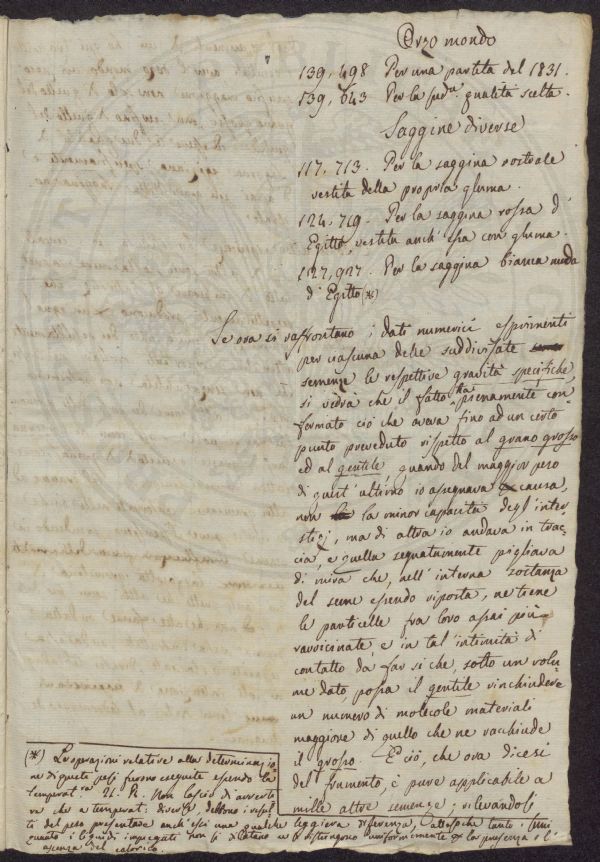 Orzo mondo
139,498 Per una partita del 1831.
139,643 Per la sudª. qualità scelta.
Saggine diverse
117,713. Per la saggina nostrale
vestita della propria gluma.
124,749. Per la saggina rossa d'
Egitto, vestita anch'essa con gluma.
127,927. Per la saggina bianca nuda
d'Egitto (*)
Se ora si raffrontano i dati numerici esprimenti
per ciascuna delle suddivisate
semenze le respettive gravità specifiche,
si vedrà che il fatto ha pienamente con
fermato ciò che aveva fino ad un certo
punto preveduto rispetto al grano grosso
ed al gentile, quando del maggior peso
di quest'ultimo io assegnava causa,
non la minor capacità degl'inter-
stizj, ma di altra io andava in trac-
cia, e quella segnatamente pigliava
di mira che, nell'interna sostanza
del seme essendo riposta, ne tiene
le particelle fra loro assai più
ravvicinate, e in tal intimità di
contatto da far sì che, sotto un volu-
me dato, possa il gentile rinchiudere
un numero di molecole materiali
maggiore di quello che ne racchiude
il grosso. E ciò, che ora dicesi
del frumento, è pure applicabile a
mille altre semenze; rilevandosi
(*) Le operazioni relative alla determinazio
ne di questi pesi furono eseguite essendo la
temperatᵃ 21 R. Non lascio di avverti
re che a temperat. diverse debbono i resul
ti del peso presentare anch'essi una qualche leggiera differenza, attesoché tanto i semi
quanto i liquidi impiegati non si dilatano e distengono uniformemente per la presenza o l'
assenza del calorico.